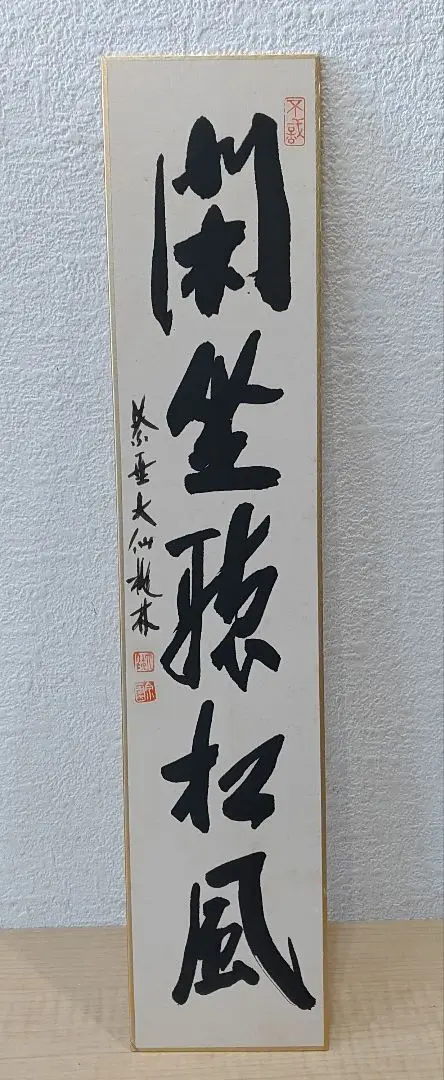 閑坐聴松風
紫野大仙龍林